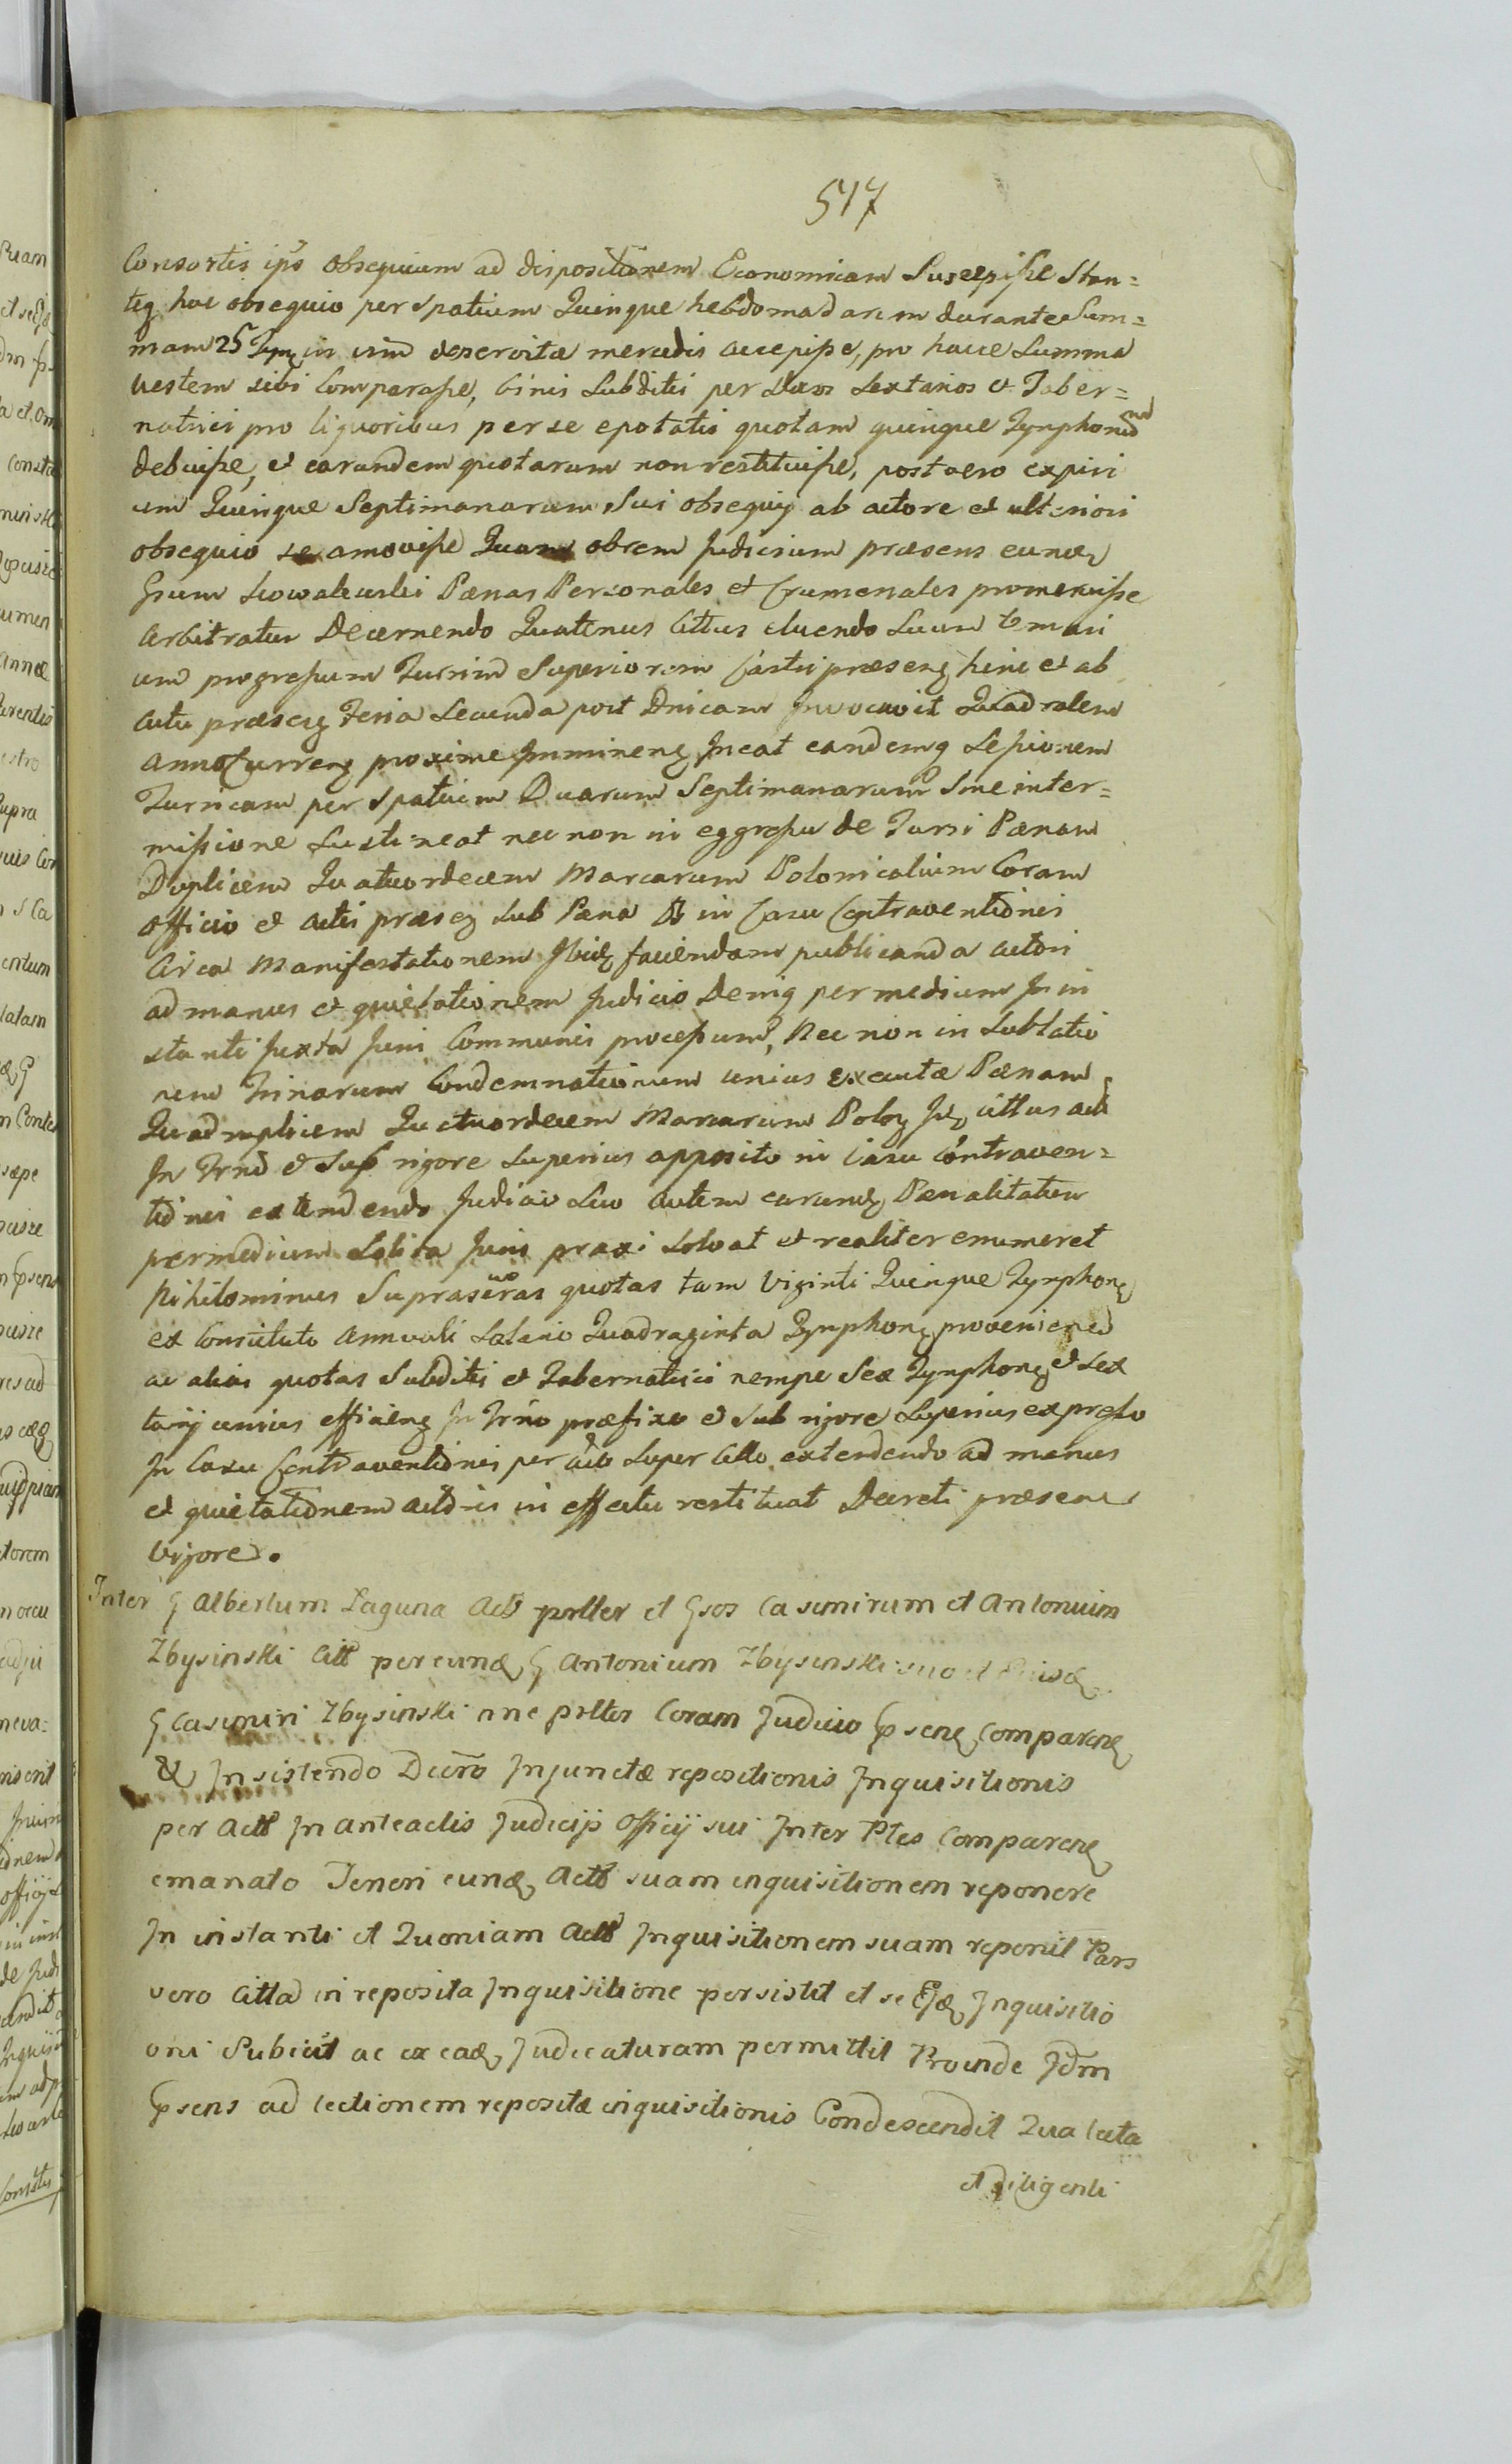 517
Consortis ips obsequium ad dispositionem Economicam Suscepisse Stan=
teq hoc obsequio per spatium Quinque hebdomadarum durante Sum=
mam 25 Tymp in vim deservitæ mercedis accepisse, pro hacce Summa
vestem sibi Comparasse, binis Subditis per duos Sextarios et Taber=
natrici pro liquoribus per se epotatis quotam quinque Tymphonū
debuisse, et earundem quotarum non restituisse, post vero expiri
um Quinque Septimanarum Sui obsequij ab actore et ulteriori
obsequio se amovisse Quam obrem Judicium præsens eunđ
Gsum Kowalewski Pænas Personales et Crumenales promeruisse
Arbitratur Decernendo Quatenus Cittus eluendo Suum temeri
um progressum Turrim Superiorem Castri præsenq hinc et ab
actu præsenq Feria Secunda post Dnicam Invocavit Quadralem
anno Currenq proxime Imminenq Ineat eandemq Sessionem
Turricam per Spatium Duarum Septimanarum Sine inter=
missione Sustineat nec non in eggressu de Turri Pænam
Duplicem Quatuordecem Marcarum Polonicalium Coram
Officio et actis præsenq Sub Pæna B in Casu Contraventiōnis
Circa Manifestationem Ibidq faciendam publicanda actori
ad manus et quietationem Judicio Deniq per medium In in
stanti Juxta Juris Communis processum, Nec non in Sublatio
nem Trinarum Condemnationum unius exactæ Pænam
Quadruplicem Quatuordecem Marcarum Polonq Idq cittus actō
In Trnō et Sub rigore Superius apposito in Casu Contraven=
tiōnis extendendo Judicio Suo autem earunđ Pænalitatem
permedium Solita Juris praxi Solvat et realiter enumeret
Nihilominus Suprascrās quotas tam Viginti Quinque Tymphonq
ex Constituto Annuali Salario Quadraginta Tymphonq proveniend
ac alias quotas Subditis et Tabernatrici nempe Sex Tymphonq et Sex
tarij unius efficienq In Trno præfixo et Sub rigore Superius expresso
In Casu Contraventiōnis per actō Super Citto extendendo ad manus
et quietatiōnem actōris in effectu restituat Decreti præsens
vigore.
Inter G Albertum Laguna Actō pstter et Gsos Casimirum et Antonium
Zbysinski Citt per eunđ G Antonium Zbysinski suo et
G Casimiri Zbysinski nne psttes Coram Judicio Psenq Comparenq
& Insistendo Decro Injunctæ repositionis Inquisitionis
per Actō In anteactis Judicijs Officij sui Inter Ptes Comparenq
emanato Teneri eunđ Actō suam inquisitionem reponere
In instanti et Quoniam Actō Inquisitionem suam reponit Pars
vero Citta in reposita Inquisitione persistit et se Ejđ Inquisitio
oni Subicit ac ex eađ Judicaturam permittit Proinde Jdm
Psens ad lectionem repositæ inquisitionis Condescendit Qua lecta
et diligenti